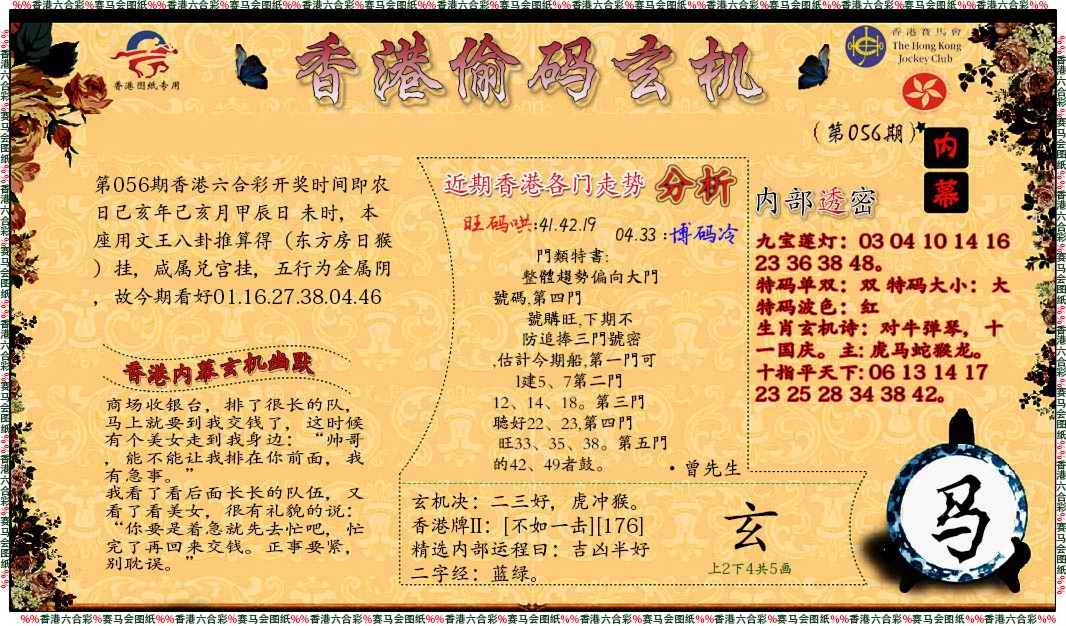 %%香港六合彩%赛马会图纸%%香港六合彩%赛马会图纸%%香港六合彩%赛马会图纸%%香港六合彩%赛马会图纸%%香港六合彩%赛马会图纸%%香港六合彩%赛马会图纸%%香港六合彩%赛马会图纸%%香港六合彩%%
香港图纸专用
香港偷码玄机
香港賽馬會
The Hong Kong
Jockey Club
(第056期)
内
幕
第056期香港六合彩开奖时间即农
日己亥年己亥月甲辰日 未时，本
座用文王八卦推算得（东方房日猴
）挂，咸属兑宫挂，五行为金属阴
，故今期看好01.16.27.38.04.46
香港内幕玄机幽默
商场收银台，排了很长的队，
马上就要到我交钱了，这时候
有个美女走到我身边：“帅哥
，能不能让我排在你前面，我
有急事。”
我看了看后面长长的队伍，又
看了看美女，很有礼貌的说：
“你要是着急就先去忙吧，忙
完了再回来交钱。正事要紧，
别耽误。”
近期香港各门走势 分析
旺码哄:41.42.19
04.33 :博码冷
門類特書:
整體趨勢偏向大門
號碼,第四門
號購旺,下期不
防追捧三門號密
,估計今期船,第一門可
1建5、7第二門
12、14、18。第三門
聽好22、23,第四門
旺33、35、38。第五門
的42、49者鼓。
·曾先生
玄机决：二三好，虎冲猴。
香港牌II：[不如一击][176]
精选内部运程曰：吉凶半好
二字经：蓝绿。
玄
上2下4共5画
内部透密
九宝莲灯：03 04 10 14 16
23 36 38 48。
特码单双：双 特码大小：大
特码波色：红
生肖玄机诗：对牛弹琴，十
一国庆。主: 虎马蛇猴龙。
十指平天下: 06 13 14 17
23 25 28 34 38 42。
马
%%香港六合彩%赛马会图纸%%香港六合彩%赛马会图纸%%香港六合彩%赛马会图纸%%香港六合彩%赛马会图纸%%香港六合彩%赛马会图纸%%香港六合彩%赛马会图纸%%香港六合彩%赛马会图纸%%香港六合彩%%